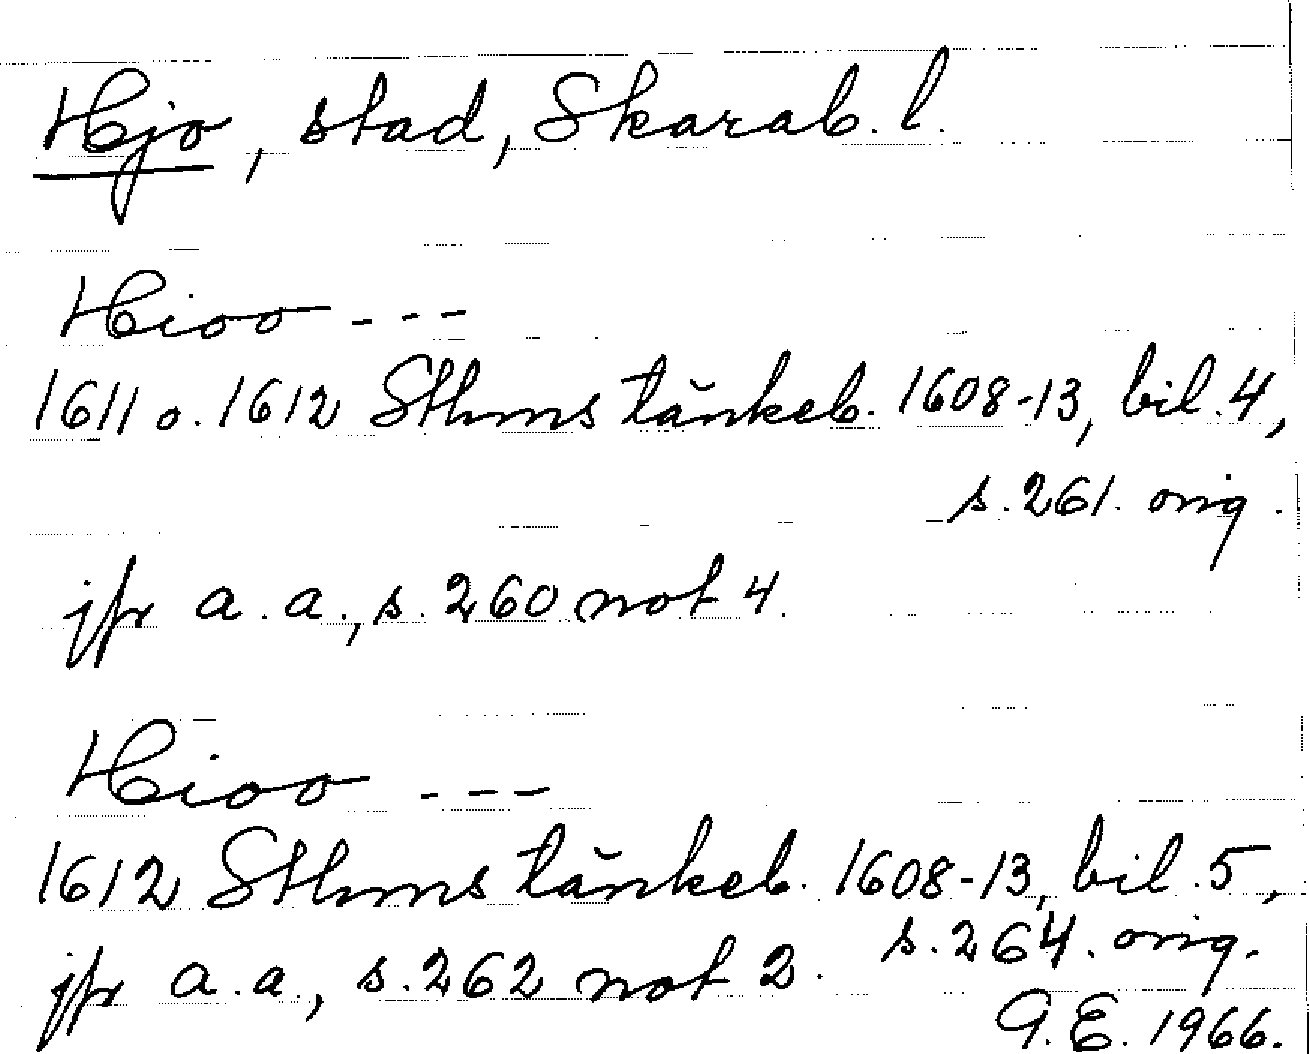 Hjo, stad, Skarab. l.
Hioo ---
1611 o. 1612 Sthms tänkeb. 1608-13, bil. 4,
s. 261. orig.
jfr a.a., s. 260 not 4.
Hioo ---
1612 Sthms tänkeb. 1608-13, bil. 5,
s. 264. orig.
jfr a.a., s. 262 not 2.
G.E. 1966.